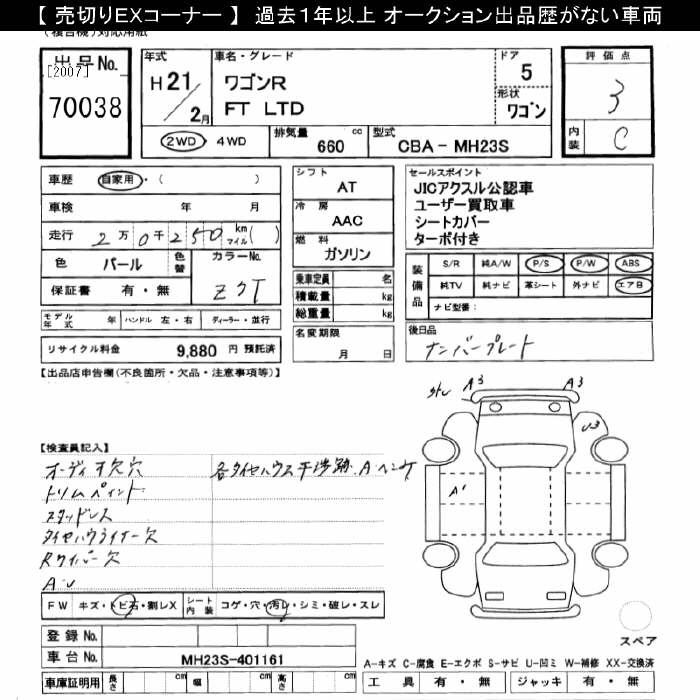 【 売切りEXコーナー 】 過去１年以上 オークション出品歴がない車両
(複合機)対応用紙
出品No.
[2007]
70038
年式
H21/2月
車名・グレード
ワゴンR
FT LTD
ドア
5
形状
ワゴン
2WD・4WD
排気量 660 cc
型式 CBA - MH23S
評価点
3
内装
C
車歴 自家用・( )
車検 年 月
走行 2万0千250 km マイル( )
色 パール 色替 カラーNo. Z7T
保証書 有・無
モデル年式 年 ハンドル 左・右 ディーラー・並行
リサイクル料金 9,880 円 預託済
シフト
AT
冷房
AAC
燃料
ガソリン
乗車定員 名
積載量 kg
総重量 kg
名変期限
月 日
セールスポイント
JICアクスル公認車
ユーザー買取車
シートカバー
ターボ付き
装備品
S/R 純A/W P/S P/W ABS
純TV 純ナビ 革シート 外ナビ エアB
ナビ型番:
後日品
ナンバープレート
【出品店申告欄(不良箇所・欠品・注意事項等)】
A3 A3
U3
A1
【検査員記入】
オーディオ欠穴
トリムペイント
スタッドレス
タイヤハウスライナー欠
Rワイパー欠
A・U
各タイヤハウス干渉跡
FW キズ・トビ石・割レX シート内装 コゲ・穴・汚レ・シミ・破レ・スレ
登録No.
車台No. MH23S-401161
車庫証明用 長さ cm 幅 cm 高さ cm
スペア
A-キズ C-腐食 E-エクボ S-サビ U-凹ミ W-補修 XX-交換済
工具 有・無 ジャッキ 有・無